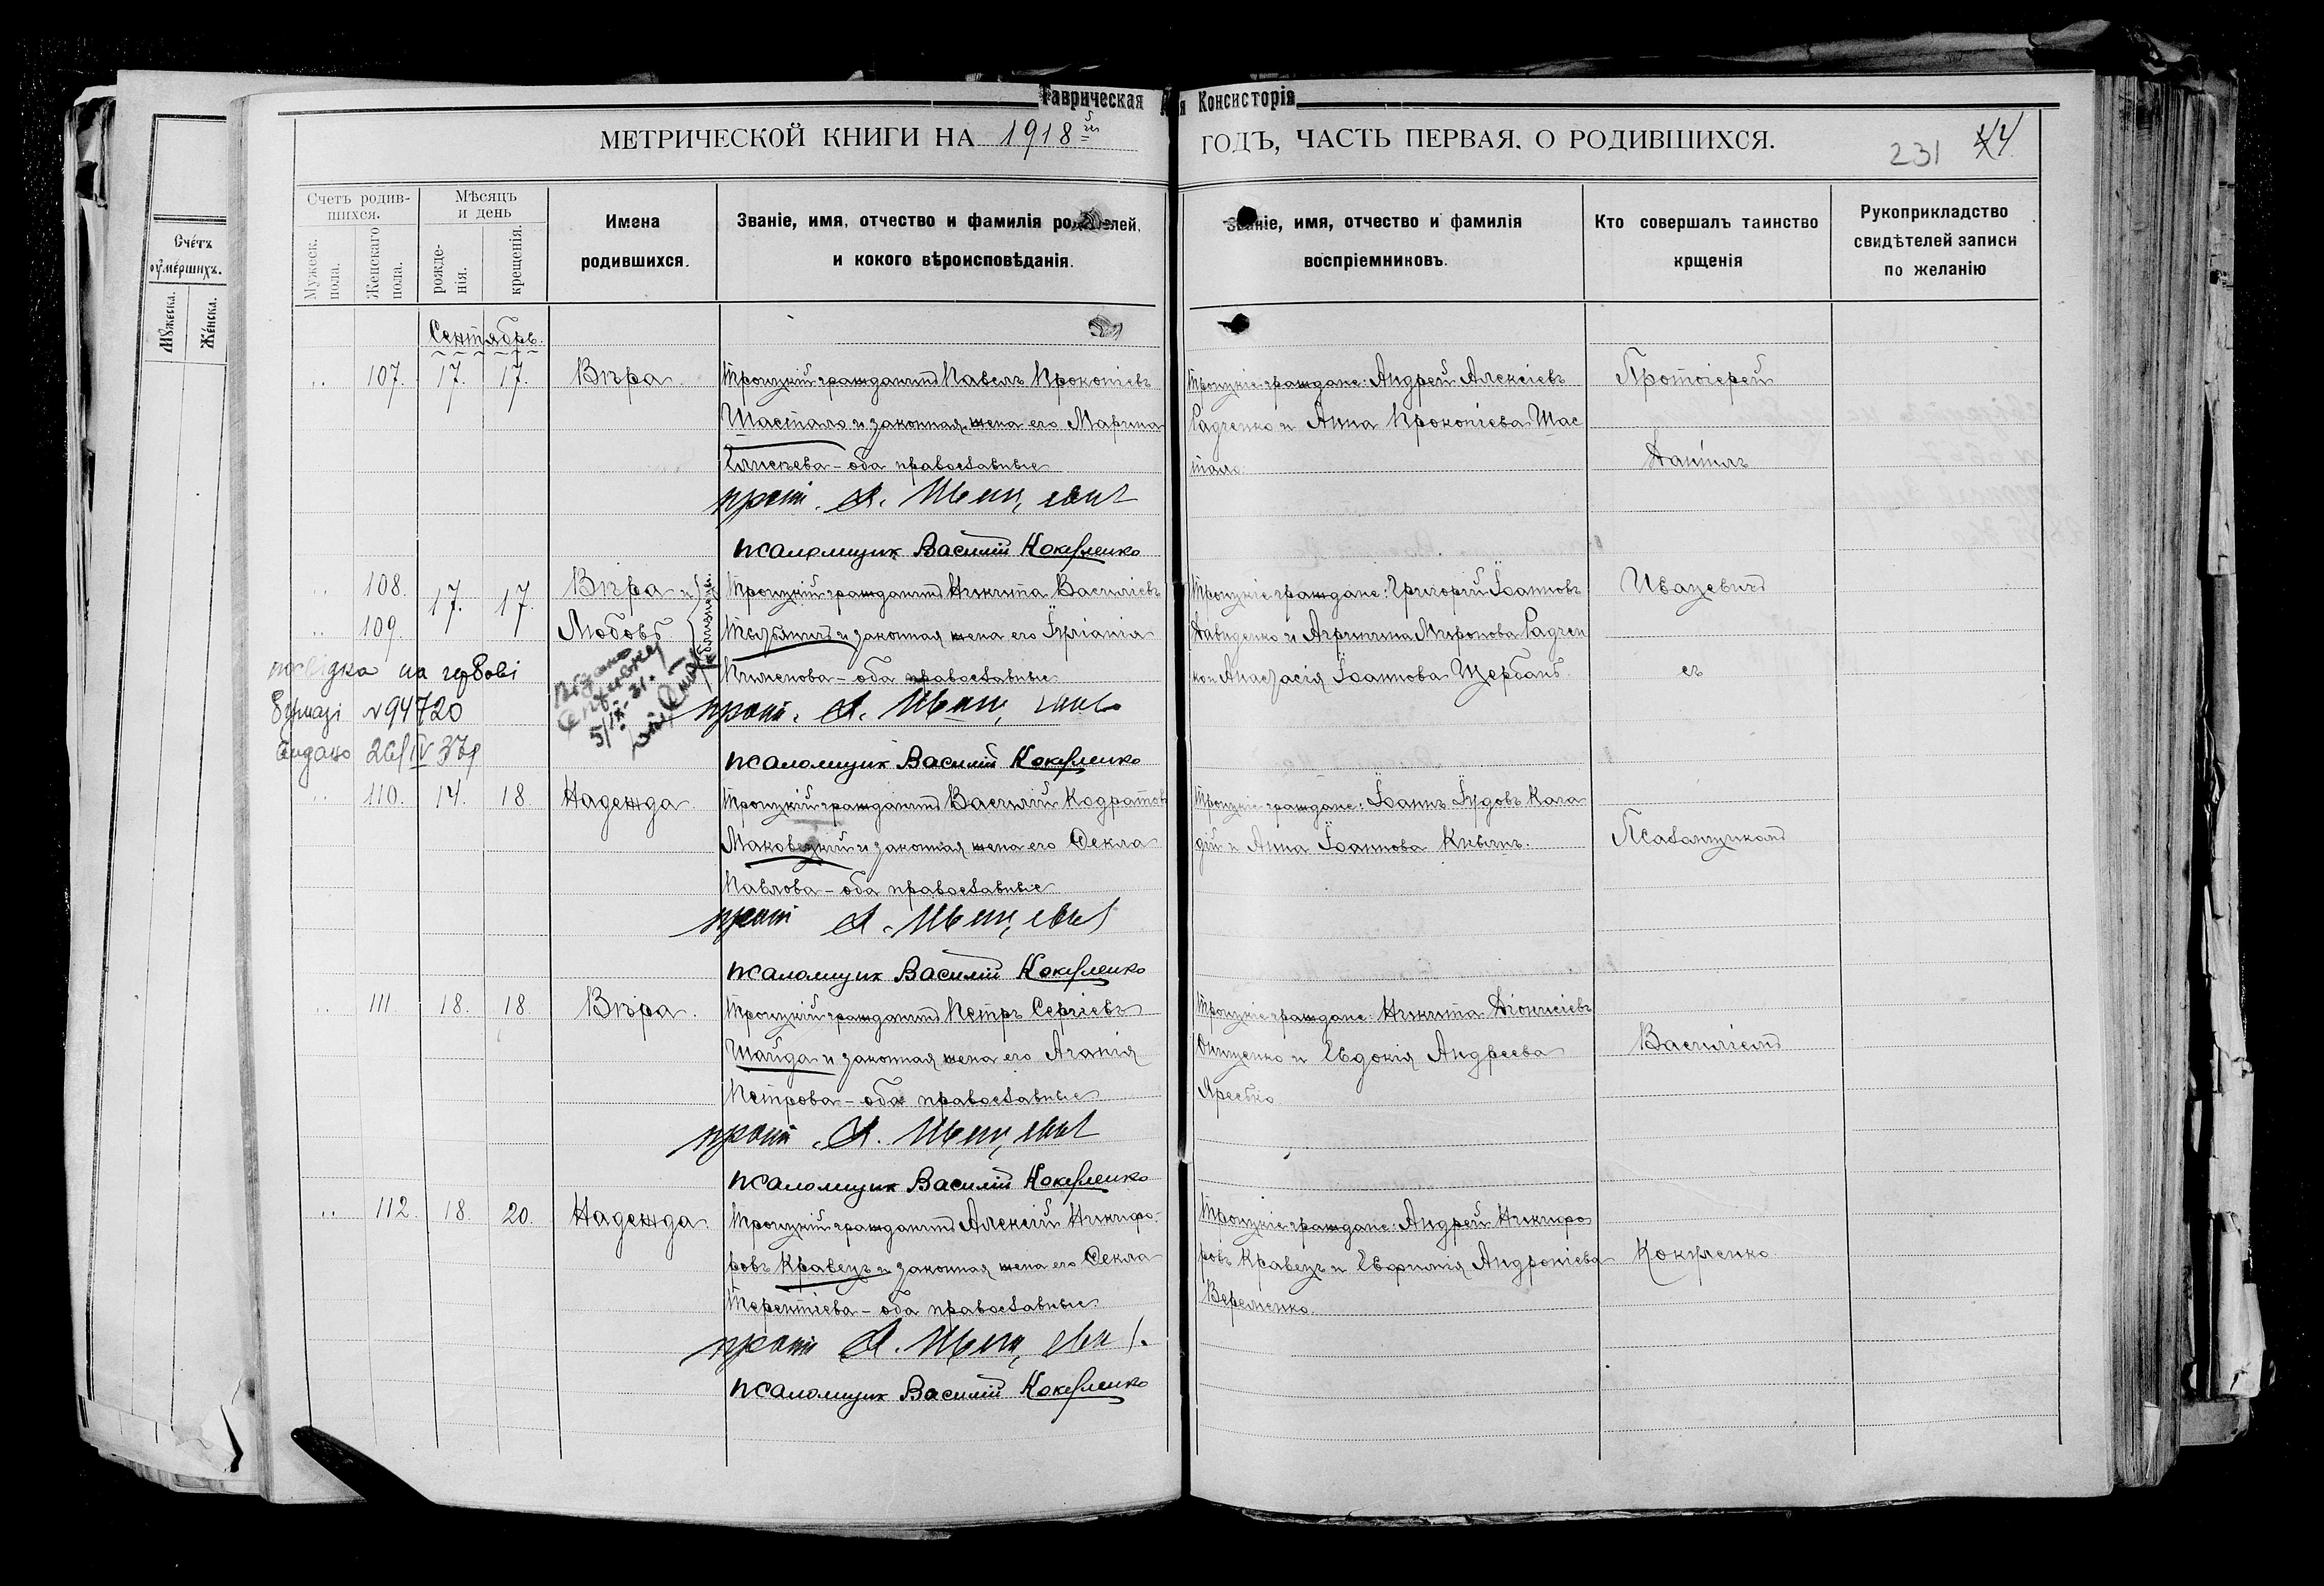 Таврическая
я Консисторія
МЕТРИЧЕСКОЙ КНИГИ НА 1918й
ГОДЪ, ЧАСТЬ ПЕРВАЯ, О РОДИВШИХСЯ.
231 44
Счётъ
оумершихъ.
Мужеска.
Женска.
Счетъ родив-
шихся.
Мужеск.
пола.
Женскаго
пола.
Мѣсяцъ
и день
рожде-
нія.
крещенія.
Имена
родившихся.
Званіе, имя, отчество и фамилія родителей,
и кокого вѣроисповѣданія.
Званіе, имя, отчество и фамилія
воспріемниковъ.
Кто совершалъ таинство
крщенія
Рукоприкладство
свидѣтелей записи
по желанію
Сентябрь.
107. 17. 17. Вѣра Троицкій гражданинъ Павелъ Прокопіевъ
Шастало и законная жена его Марина
Елисѣева - оба православные
прот. Д. Иваницевич
псаломщик Василій Кокуленко
Троицкіе граждане: Андрей Алексіевъ
Радченко и Анна Прокопіева Шас
тало
Протоіерей
Даніилъ
108. 17. 17. Вѣра и
109. Любовь
близнецы.
Троицкій гражданинъ Никита Василіевъ
и законная жена его Іуліанія
Климова - оба православные
прот. Д.
псаломщик Василій Кокуленко
Троицкіе граждане: Григорій Іоанновъ
Давиденко и Агриппина Миронова Радчен
ко и Анастасія Іоаннова Щербань.
Иваницевичъ
съ
на гербові
бумазі №94720
видано 26/IV 37р
Видано
5/IX-31.
110. 14. 18. Надежда Троицкій гражданинъ Василій Кодратов
Маковецкій и законная жена его Ѳекла
Павлова - оба православные
прот Д.
псаломщик Василій Кокуленко
Троицкіе граждане: Іоаннъ Іудовъ Кага
дій и Анна Іоаннова
Псаломщикомъ
111. 18. 18. Вѣра. Троицкій гражданинъ Петръ Сергіевъ
Шайда и законная жена его Агапія
Петрова - оба православные
прот. Д.
псаломщик Василій Кокуленко
Троицкіе граждане: Никита Діонисіевъ
Онищенко и Евдокія Андреева
Яресько
Василіемъ
112. 18. 20. Надежда. Троицкій гражданинъ Алексій Никифо-
ровъ Кравецъ и законная жена его Ѳекла
Терентіева - оба православные
прот Д.
псаломщик Василій Кокуленко
Троицкіе граждане: Андрей Никифо
ровъ Кравецъ и Евфимія Андроніева
Веременко
Кокуленко